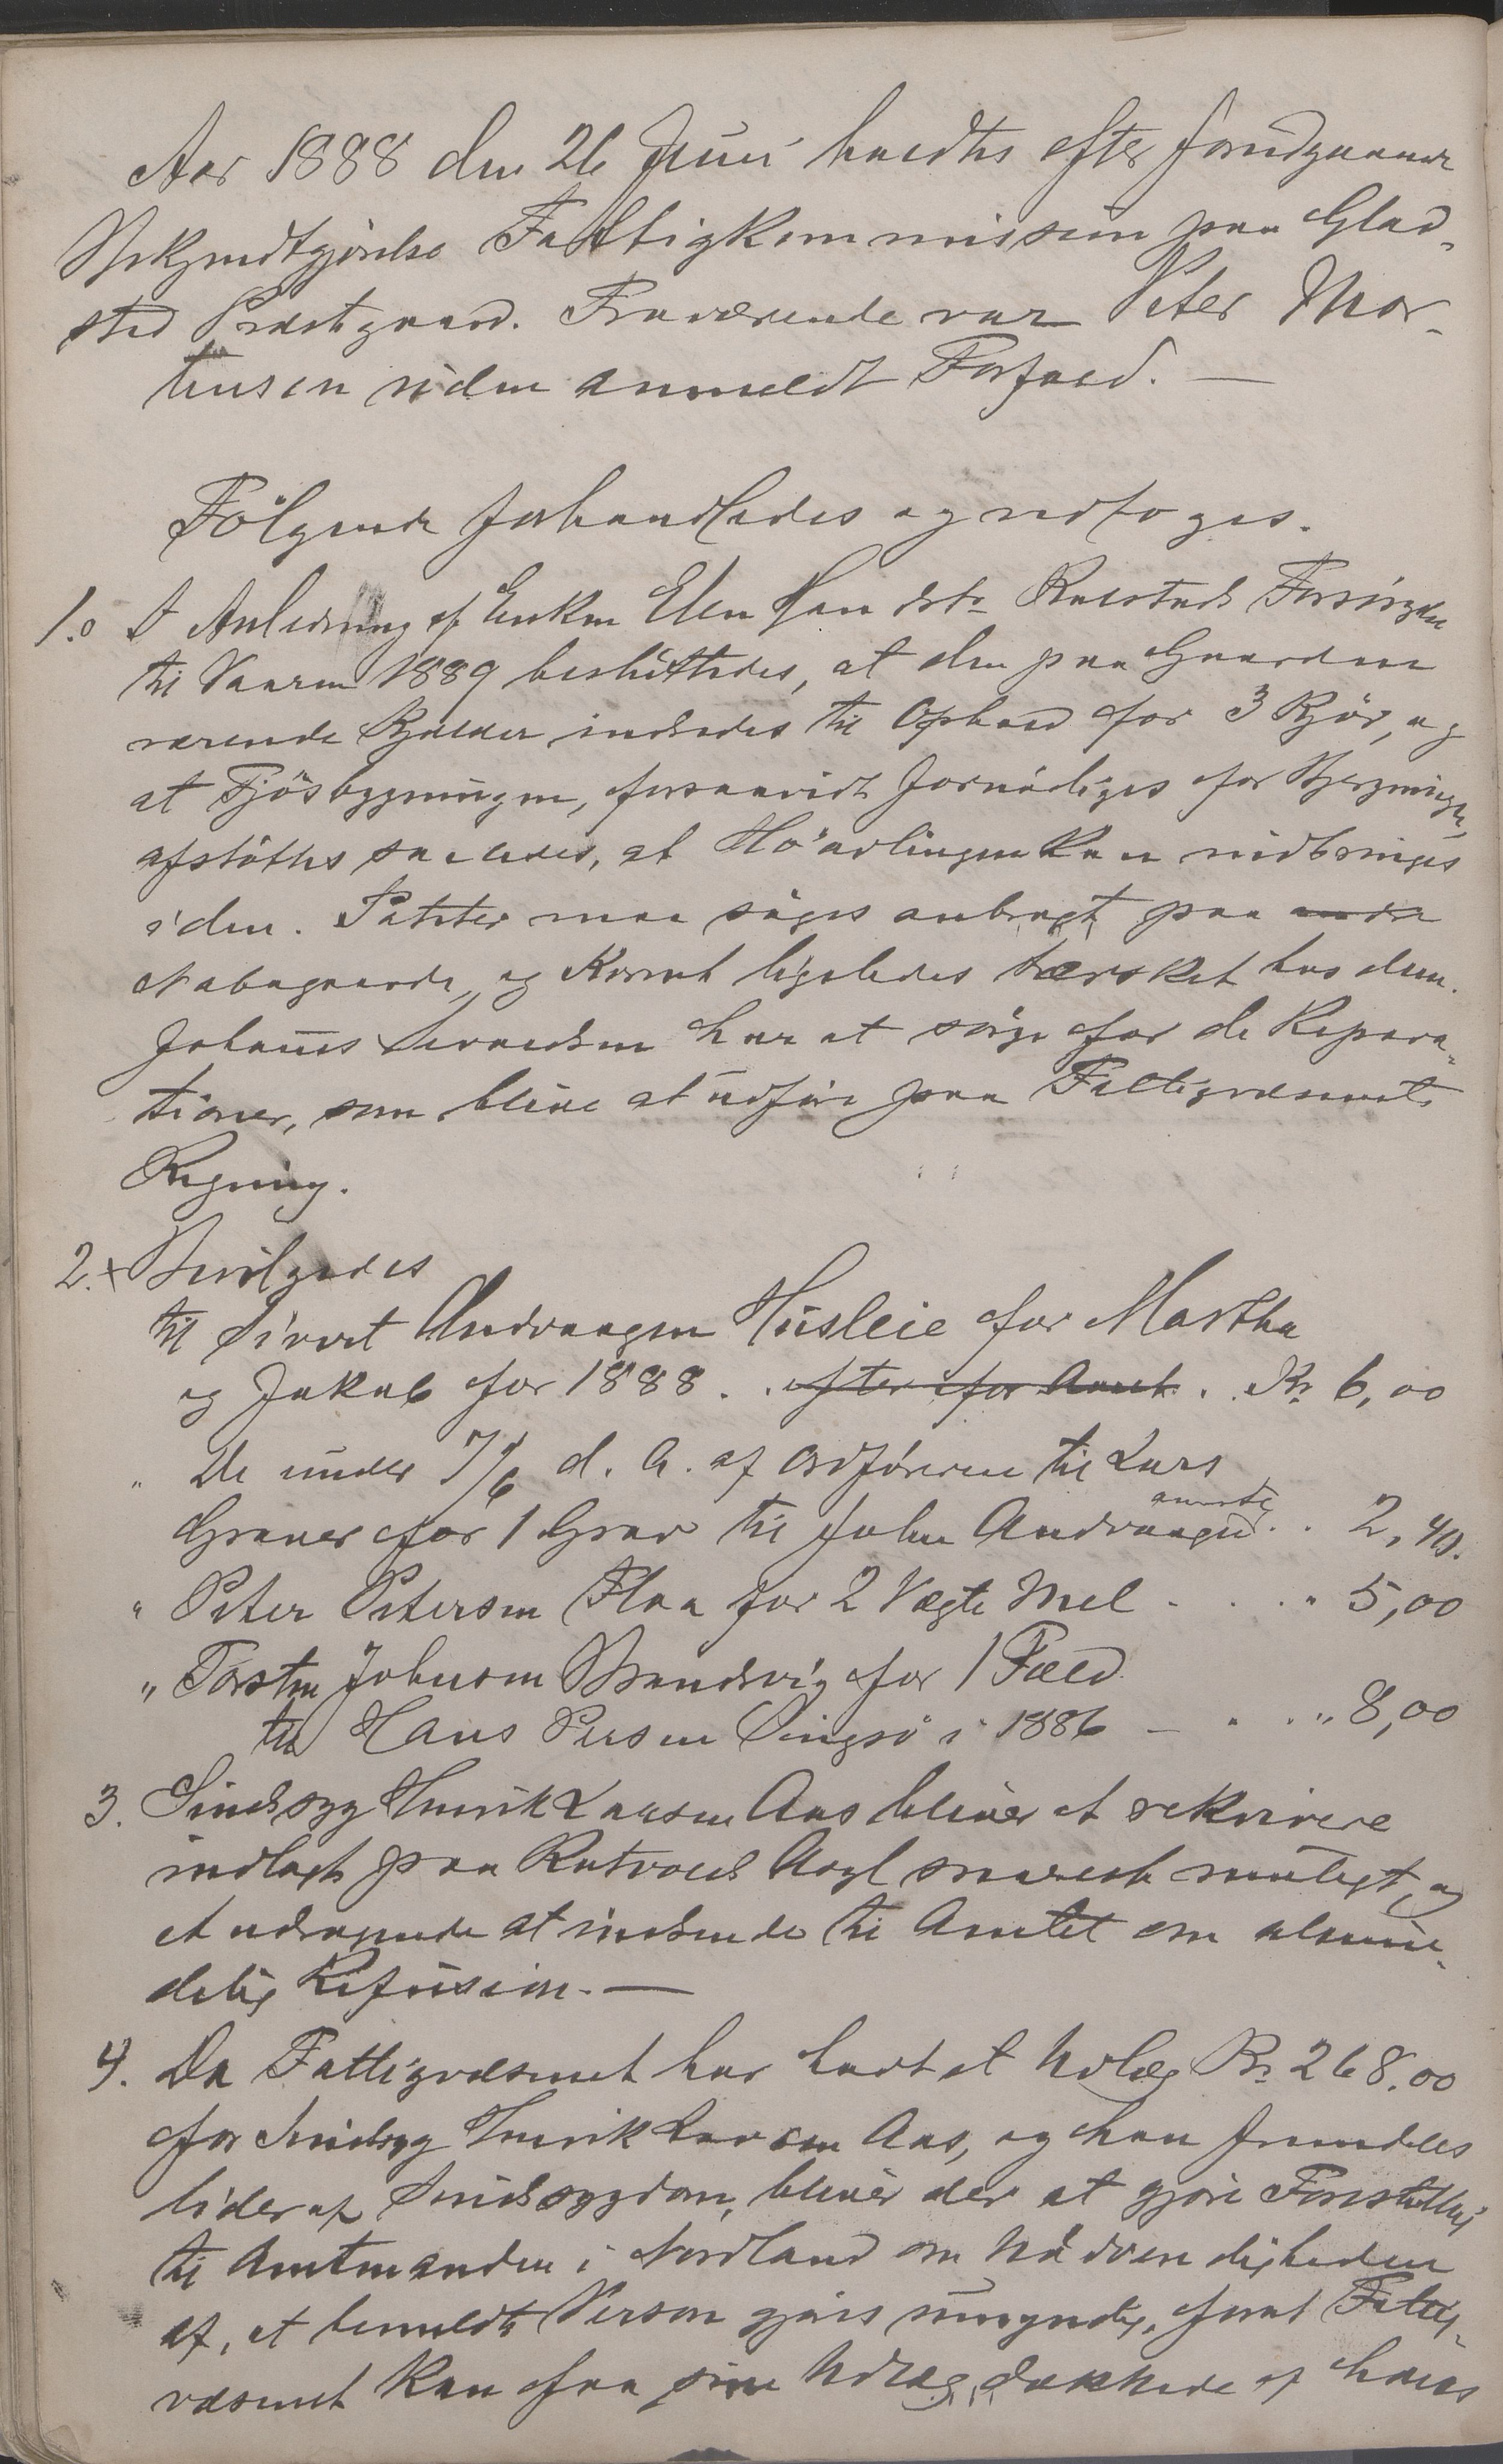 Aar 1888 den 26 Juni holdtes efter forudgaaende
Bekjendtgjörelse Fattigkommission paa Glad-
sted Præstgaard. Fraværende var Peter Mor-
tensen uden anmeldt Forfald. —
Fölgende forhandledes og vedtoges.
1. I Anledning af Enken Elen Forsörgelse
til Vaaren 1889 besluttedes, at den paa Gaarden
værende Kjelder indredes til Ophold for 3 Kjör, og
at Fjösbygningen, forsaavidt fornödiges for Bjergningen,
afstöttes saaledes, at Höavlingen kan indbringes
i den. Poteter maa söges anbragt paa andre
Nabogaarde, og Kornet ligeledes tærsket hos dem.
Johannes Sivertsen har at sörge for de Repara-
tioner, som blive at udföre paa Fattigvæsenets
Regning.
2. Bevilgedes
til Sivert Andvaagen Husleie for Martha
og Jakob for 1888 . . efter for Aaret . . Kr 6,00
" De under 7/6 d. A. af Ordföreren til Lars
Graver for 1 Grav til John Andvaagen anviste . . 2,40.
" Peter Petersen Flaa for 2 Vægte Mel . . . " 5,00
" Torsten Johnsen Strandvig for 1 Fæld
til Hans Persen Dingsö i 1886 — . . " 8,00
3. Sindssyg Henrik Larsen Aas bliver at rekvirere
indlagt paa Rotvold Asyl snarest muligt, og
et Andragende at indsende til Amtet om almin-
delig Refusion. —
4. Da Fattigvæsenet har havt et Udlæg Kr 268.00
for Sindssyg Henrik Larsen Aas, og han fremdeles
lider af Sindssygdom, bliver der at gjöre Forestilling
til Amtmanden i Nordland om Nödvendigheden
af, at bemeldte Person gjöres umyndig, forat Fattig-
væsenet kan faa sine Udlæg dækkede af hans